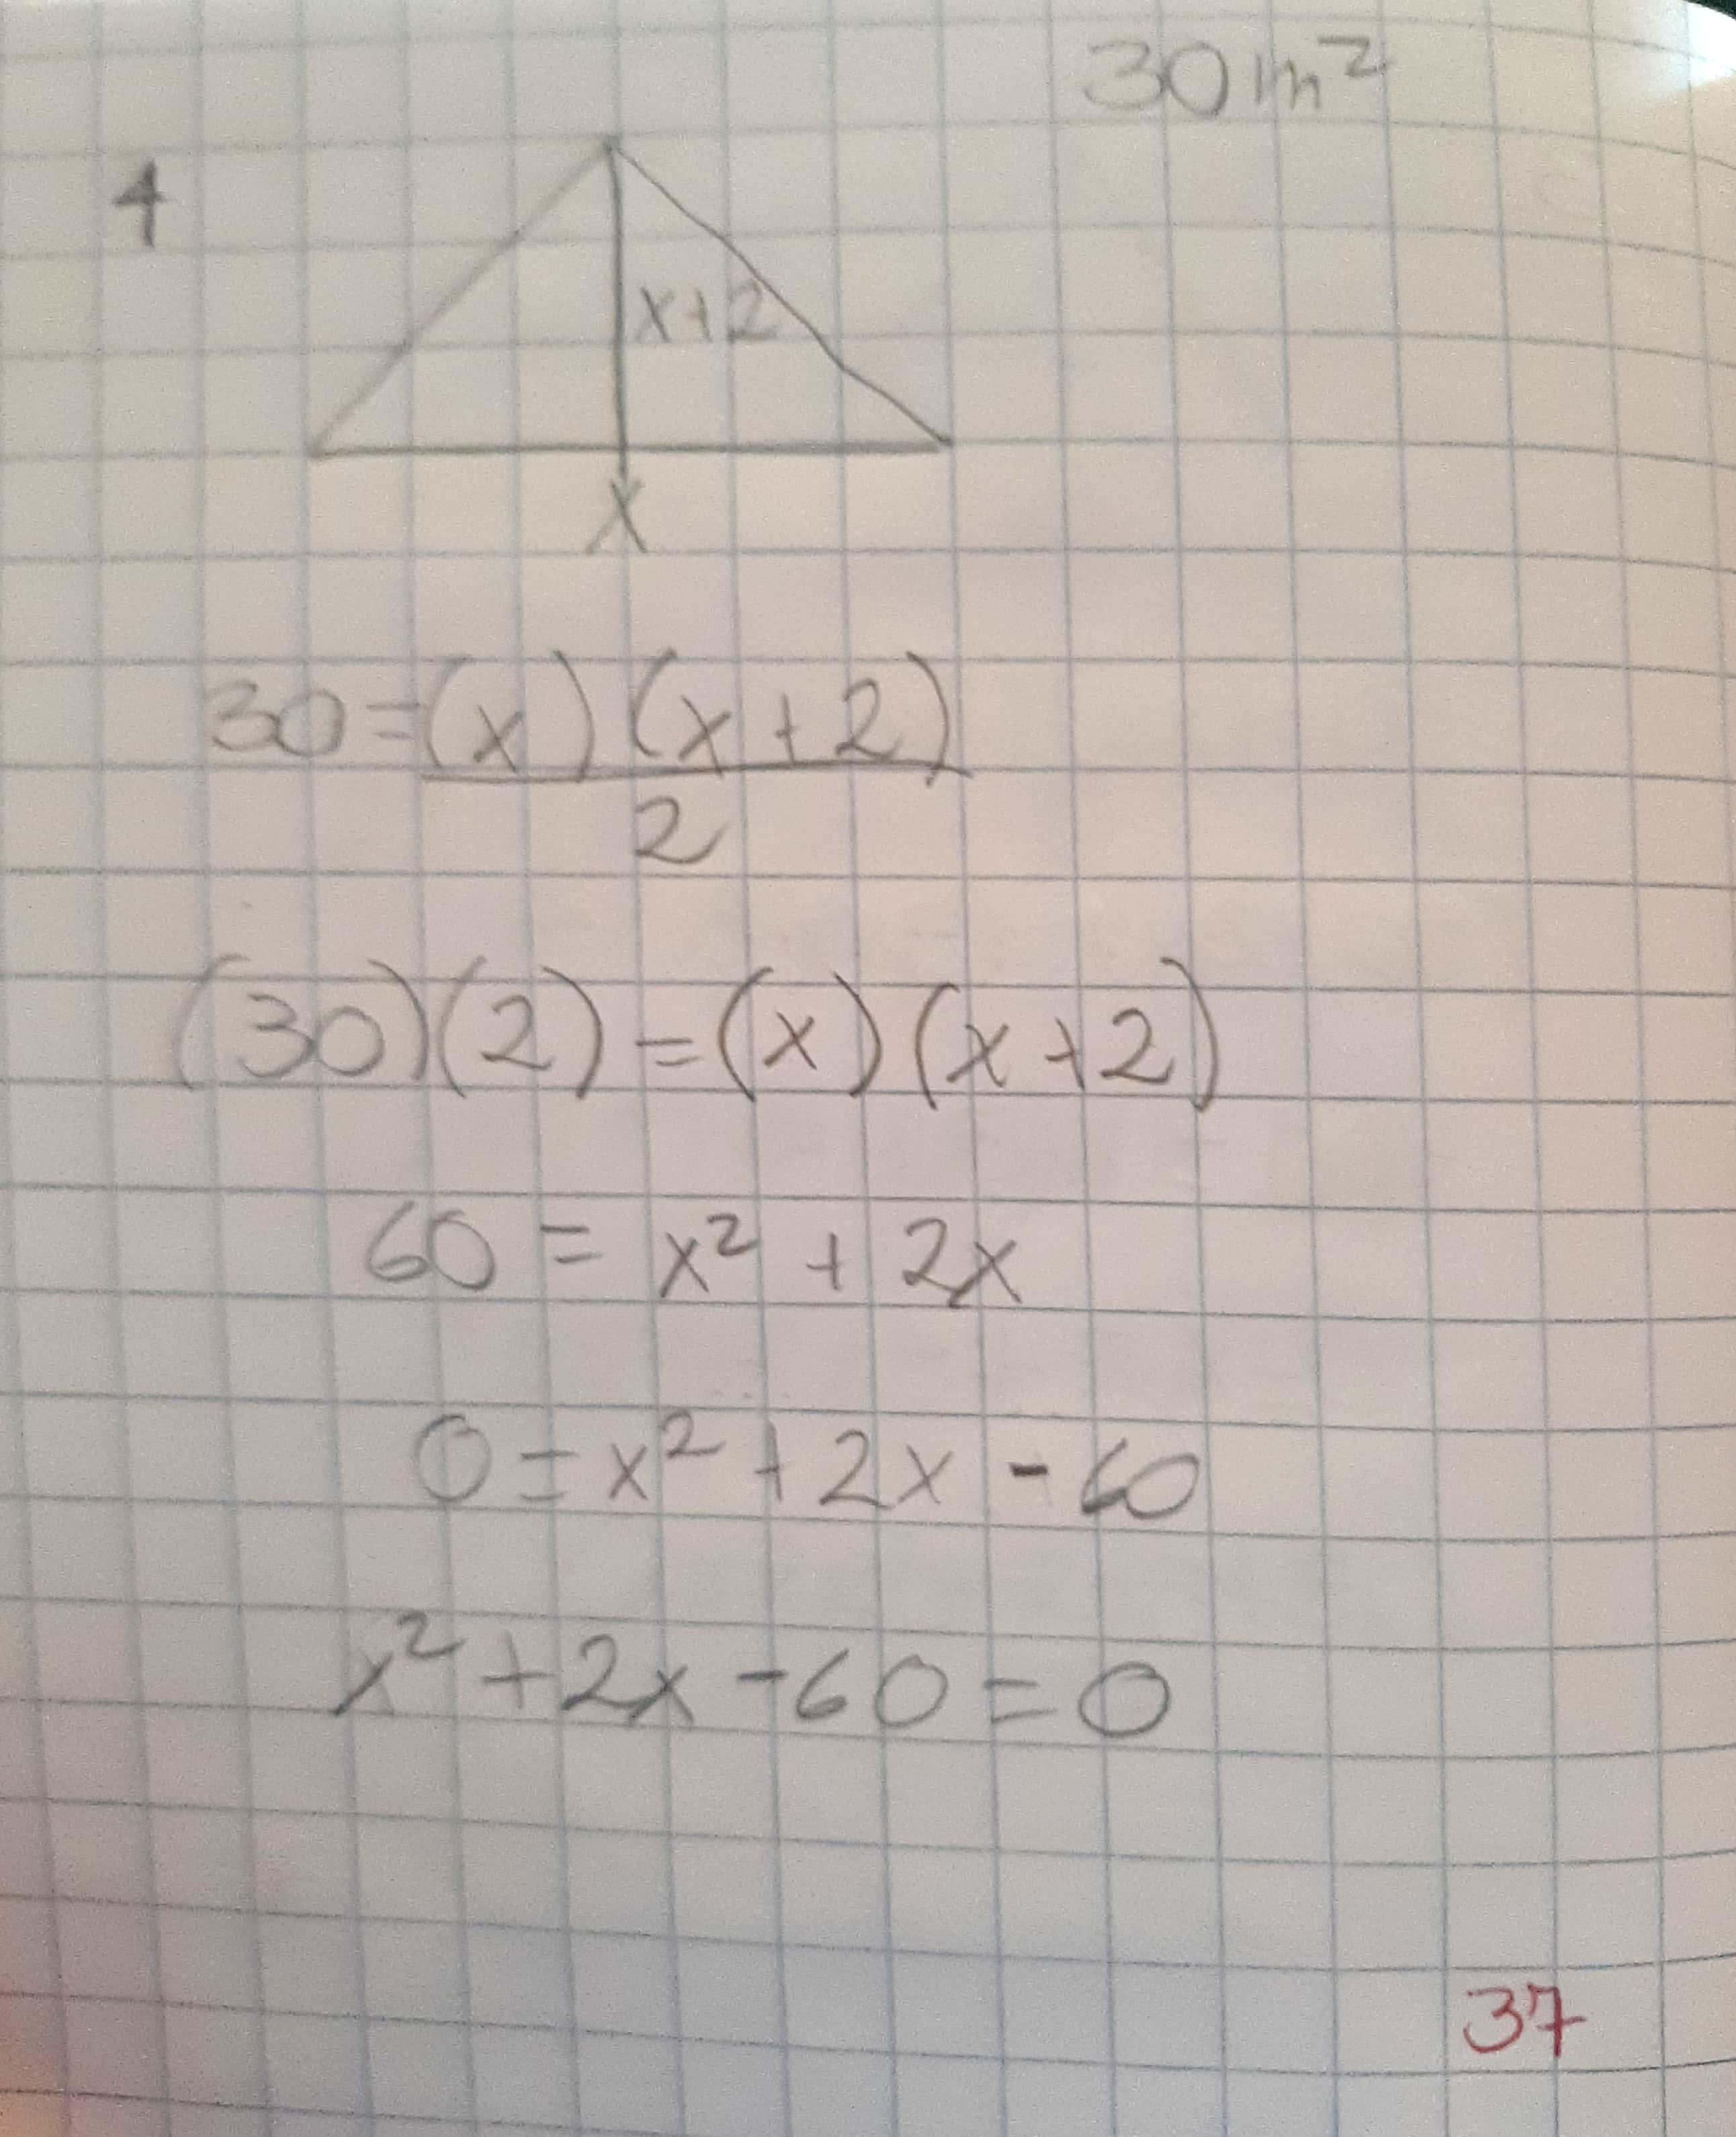 30 m²
4
x+2
x
30 = (x) (x + 2)
2
(30)(2) = (x) (x + 2)
60 = x² + 2x
0 = x² + 2x - 60
x² + 2x - 60 = 0
37